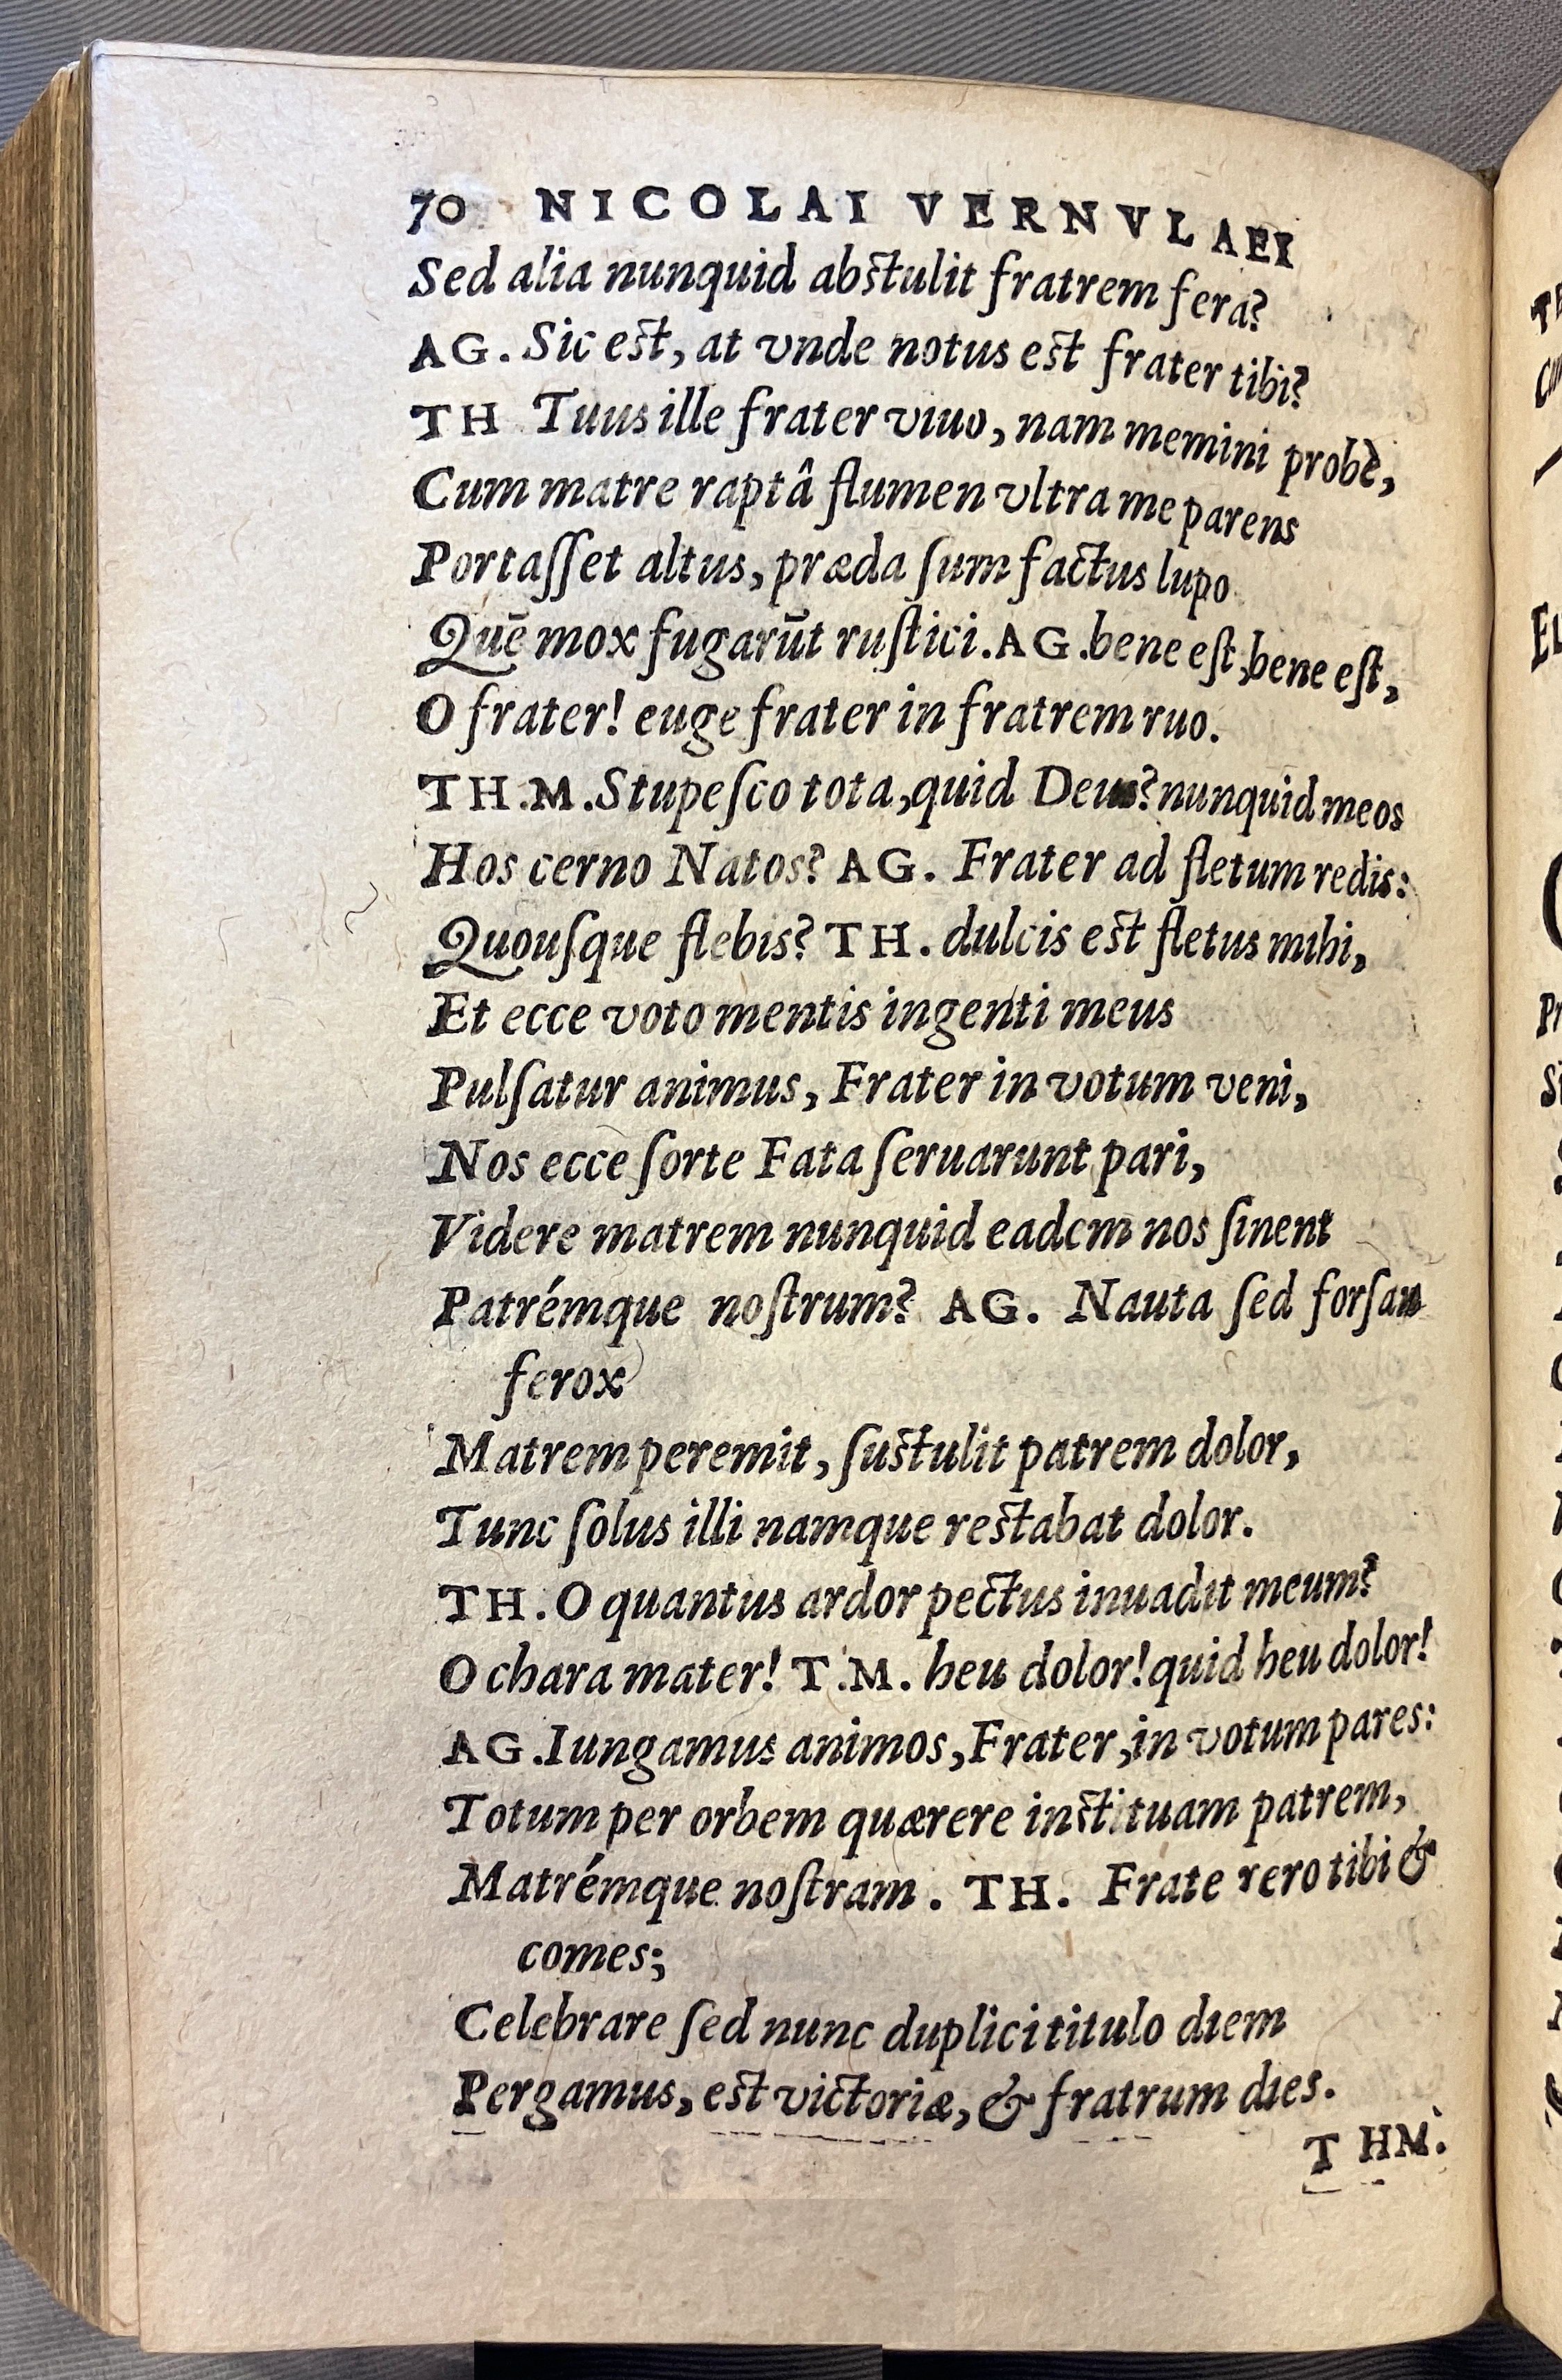 70 NICOLAI VERNVLAEI
Sed alia nunquid abstulit fratrem fera?
AG. Sic est, at vnde notus est frater tibi?
TH Tuus ille frater viuo, nam memini probè,
Cum matre raptâ flumen vltra me parens
Portaſſet altus, præda ſum factus lupo
Quē mox fugarūt ruſtici. AG. bene eſt, bene eſt,
O frater! euge frater in fratrem ruo.
TH.M. Stupeſco tota, quid Deus? nunquid meos
Hos cerno Natos? AG. Frater ad fletum redis:
Quouſque flebis? TH. dulcis est fletus mihi,
Et ecce voto mentis ingenti meus
Pulſatur animus, Frater in votum veni,
Nos ecce ſorte Fata ſeruarunt pari,
Videre matrem nunquid eadem nos ſinent
Patrémque noſtrum? AG. Nauta ſed forſan
ferox
Matrem peremit, ſustulit patrem dolor,
Tunc ſolus illi namque restabat dolor.
TH. O quantus ardor pectus inuadit meum?
O chara mater! T.M. heu dolor! quid heu dolor!
AG. Iungamus animos, Frater, in votum pares:
Totum per orbem quærere instituam patrem,
Matrémque noſtram. TH. Frate rero tibi &
comes;
Celebrare ſed nunc duplici titulo diem
Pergamus, est victoriæ, & fratrum dies.
T HM.